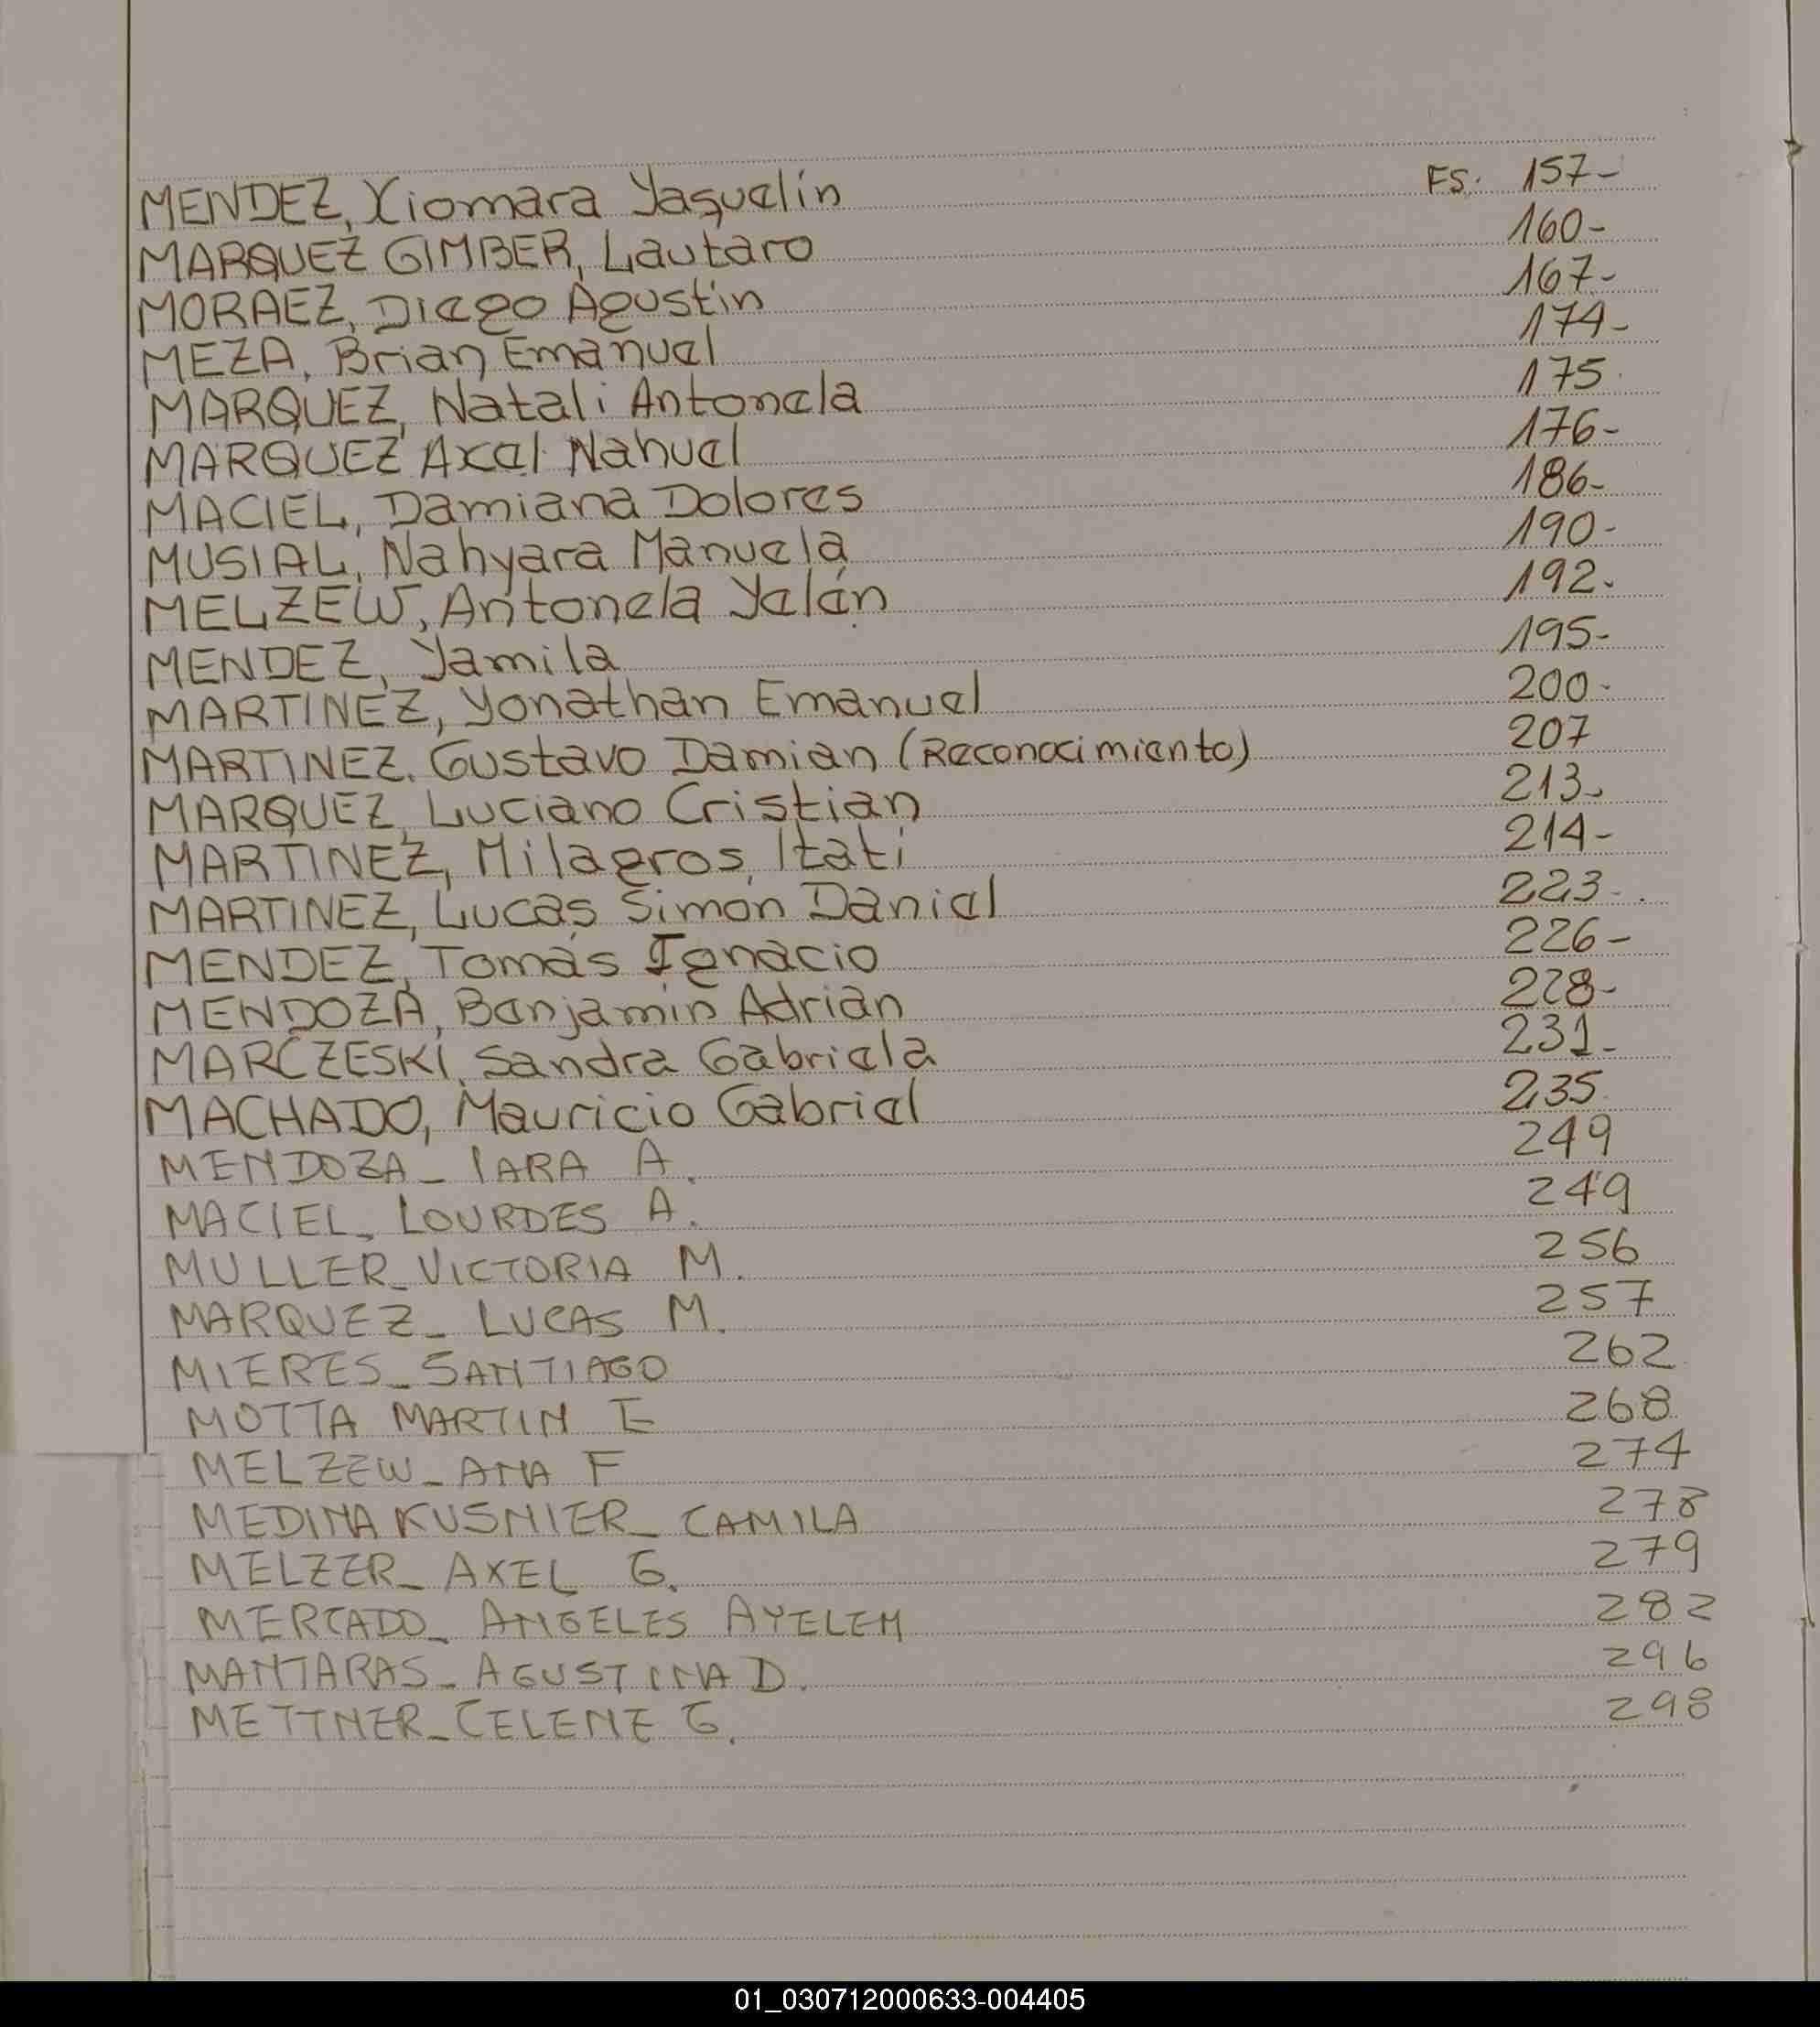 MENDEZ, Xiomara Yaquelín FS. 157-
MARQUEZ GIMBER, Lautaro 160-
MORAEZ, Diego Agustin 167-
MEZA, Brian Emanuel 174-
MARQUEZ, Natali Antonela 175
MARQUEZ Axel Nahuel 176-
MACIEL, Damiana Dolores 186-
MUSIAL, Nahyara Manuela 190-
MELZEW, Antonela Yelén 192-
MENDEZ, Yamila 195-
MARTINEZ, Yonathan Emanuel 200-
MARTINEZ. Gustavo Damian (Reconocimiento) 207
MARQUEZ, Luciano Cristian 213-
MARTINEZ, Milagros, Itati 214-
MARTINEZ, Lucas Simón Daniel 223-
MENDEZ, Tomás Ignacio 226-
MENDOZA, Benjamin Adrian 228-
MARCZESKI, Sandra Gabriela 231-
MACHADO, Mauricio Gabriel 235
MENDOZA_ IARA A. 249
MACIEL_ LOURDES A. 249
MULLER_VICTORIA M. 256
MARQUEZ_ LUCAS M. 257
MIERES_SANTIAGO 262
MOTTA MARTIN E 268
MELZEW_ ANA F 274
MEDINA KUSNIER_ CAMILA 278
MELZER_ AXEL G. 279
MERCADO_ ANGELES AYELEN 282
MANTARAS_ AGUSTINA D. 296
METTNER_CELENE G. 298
01_030712000633-004405